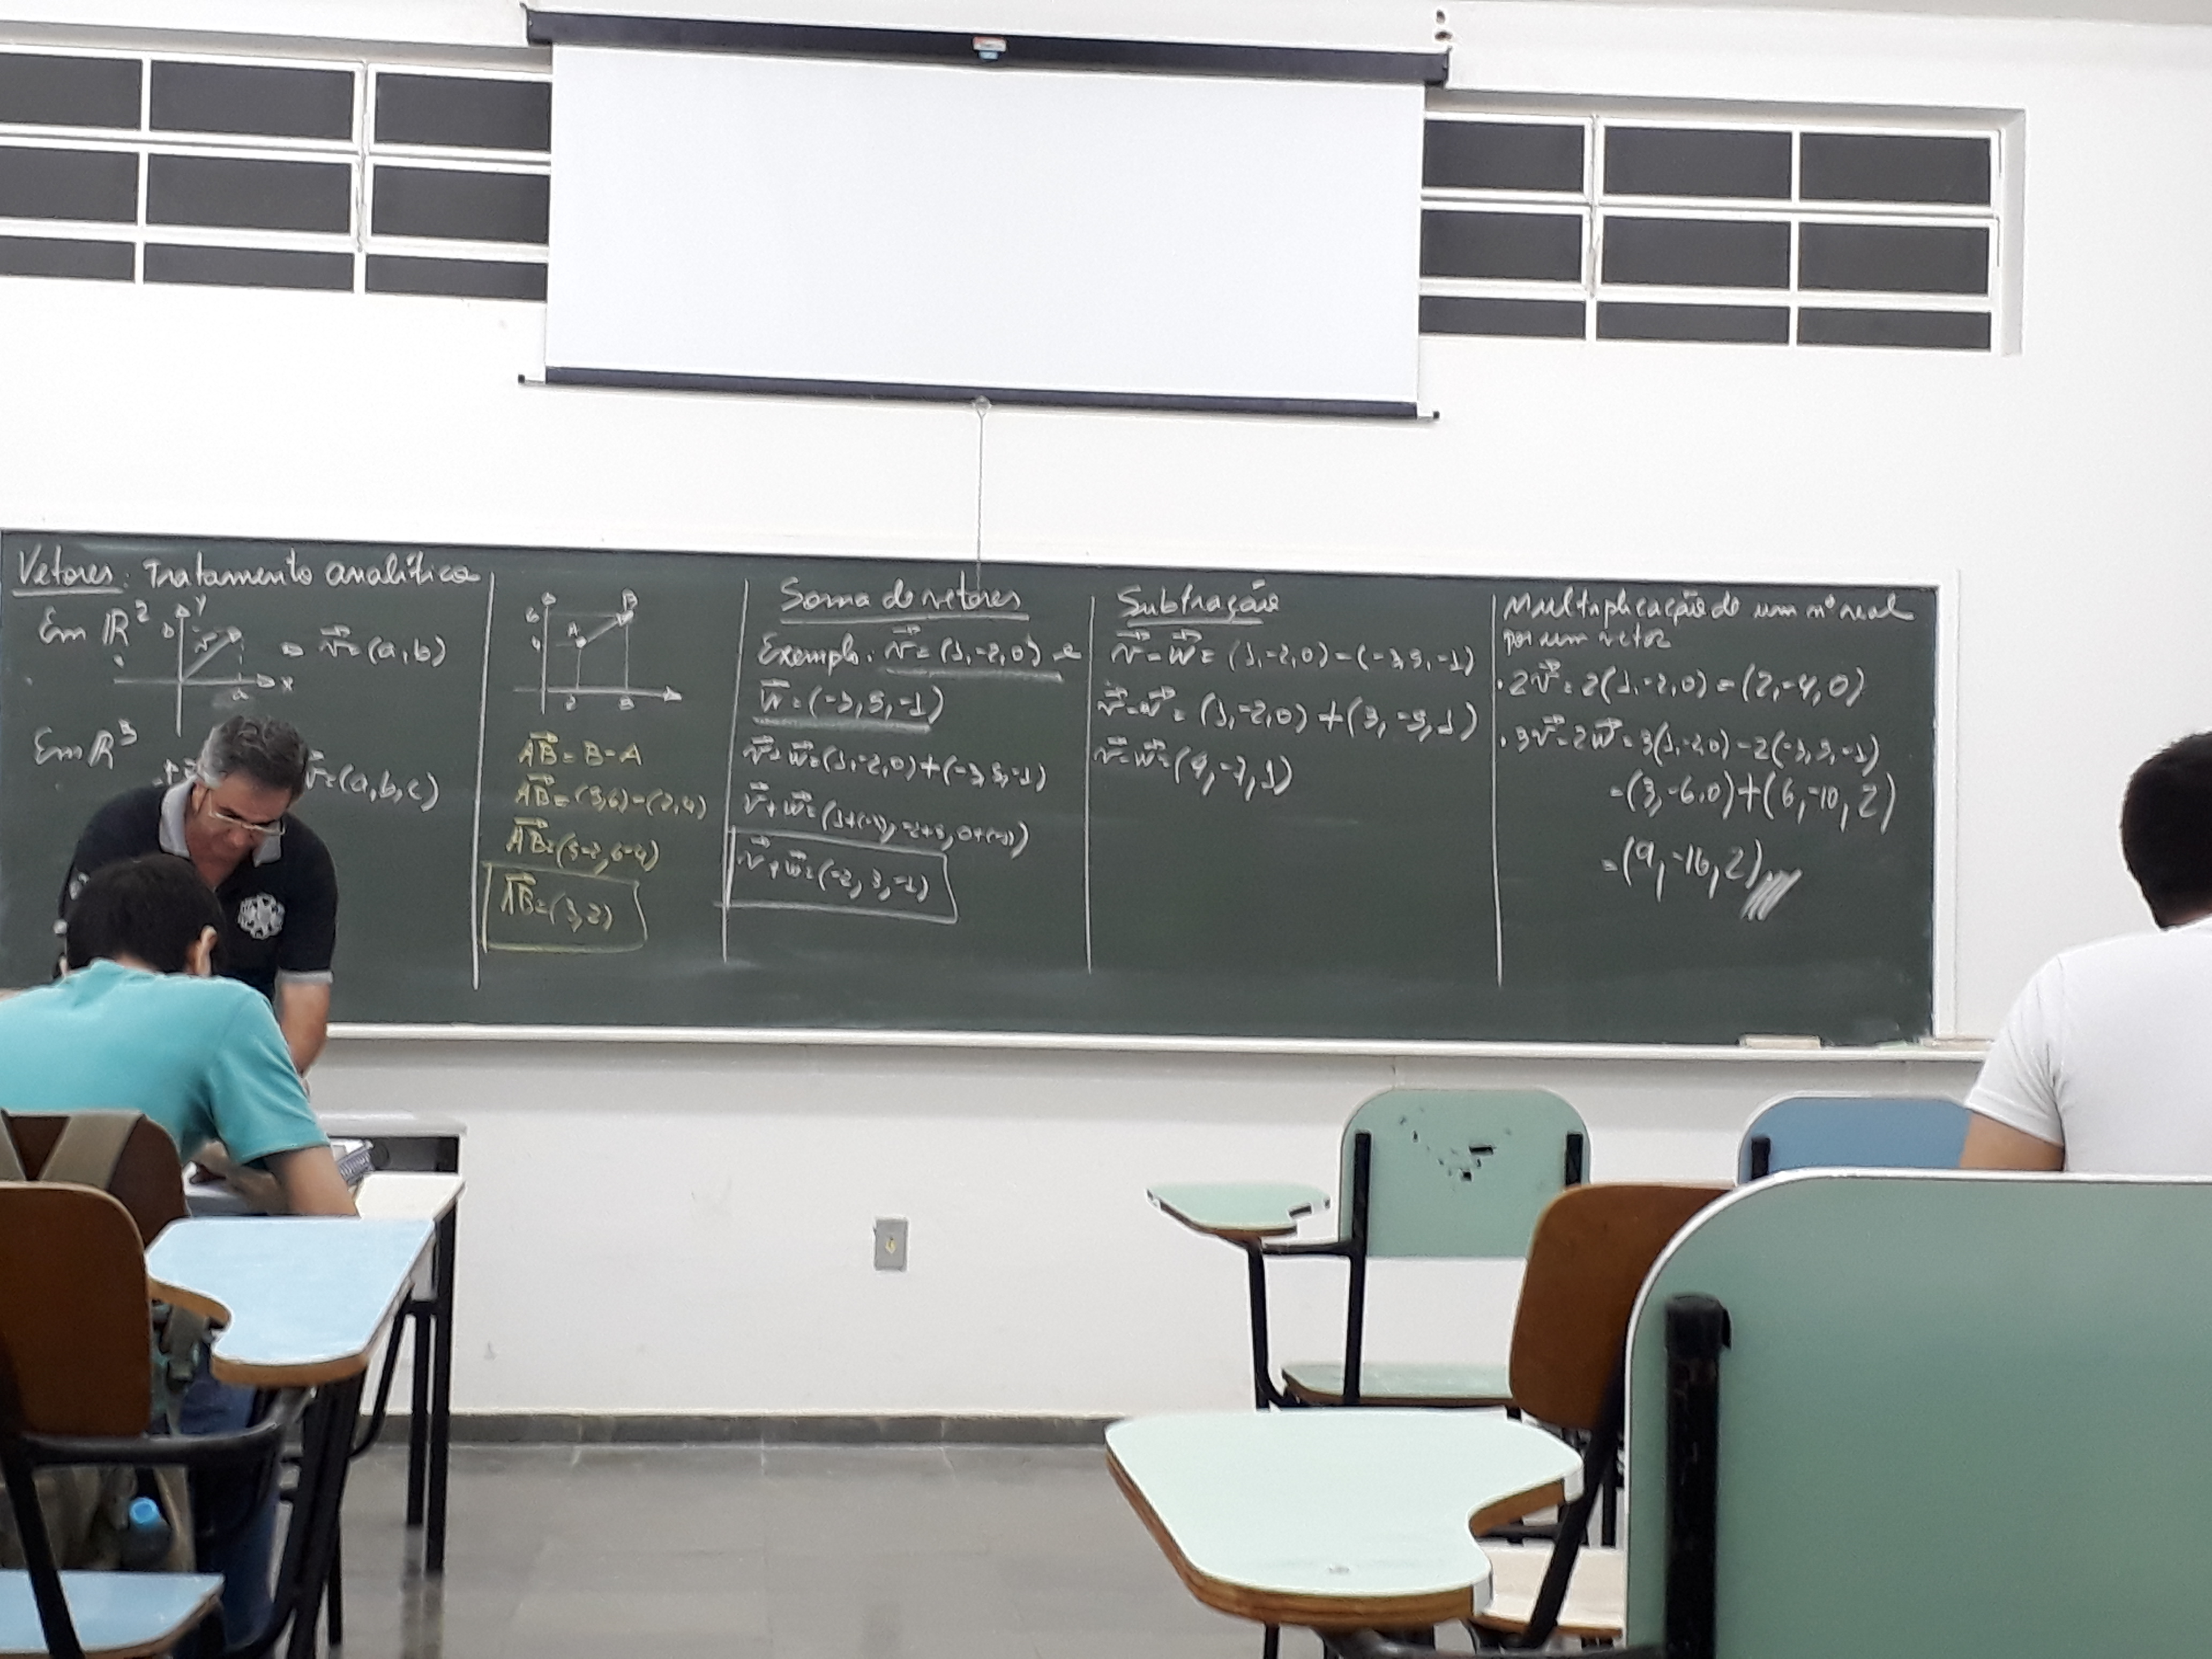 Vetores: Tratamento analítico
Em R² y b v a x ⇒ v = (a, b)
Em R³ v = (a, b, c)
6 B
4 A
AB = B - A
AB = (5,6) - (2,4)
AB = (5-2, 6-4)
AB = (3,2)
Soma de vetores
Exemplo: v = (1, -2, 0) e
w = (-3, 5, -1)
v + w = (1, -2, 0) + (-3, 5, -1)
v + w = (1+(-3), -2+5, 0+(-1))
v + w = (-2, 3, -1)
Subtração
v - w = (1, -2, 0) - (-3, 5, -1)
v - w = (1, -2, 0) + (3, -5, 1)
v - w = (4, -7, 1)
Multiplicação de um nº real
por um vetor
. 2v = 2(1, -2, 0) = (2, -4, 0)
. 3v - 2w = 3(1, -2, 0) - 2(-3, 5, -1)
= (3, -6, 0) + (6, -10, 2)
= (9, -16, 2)